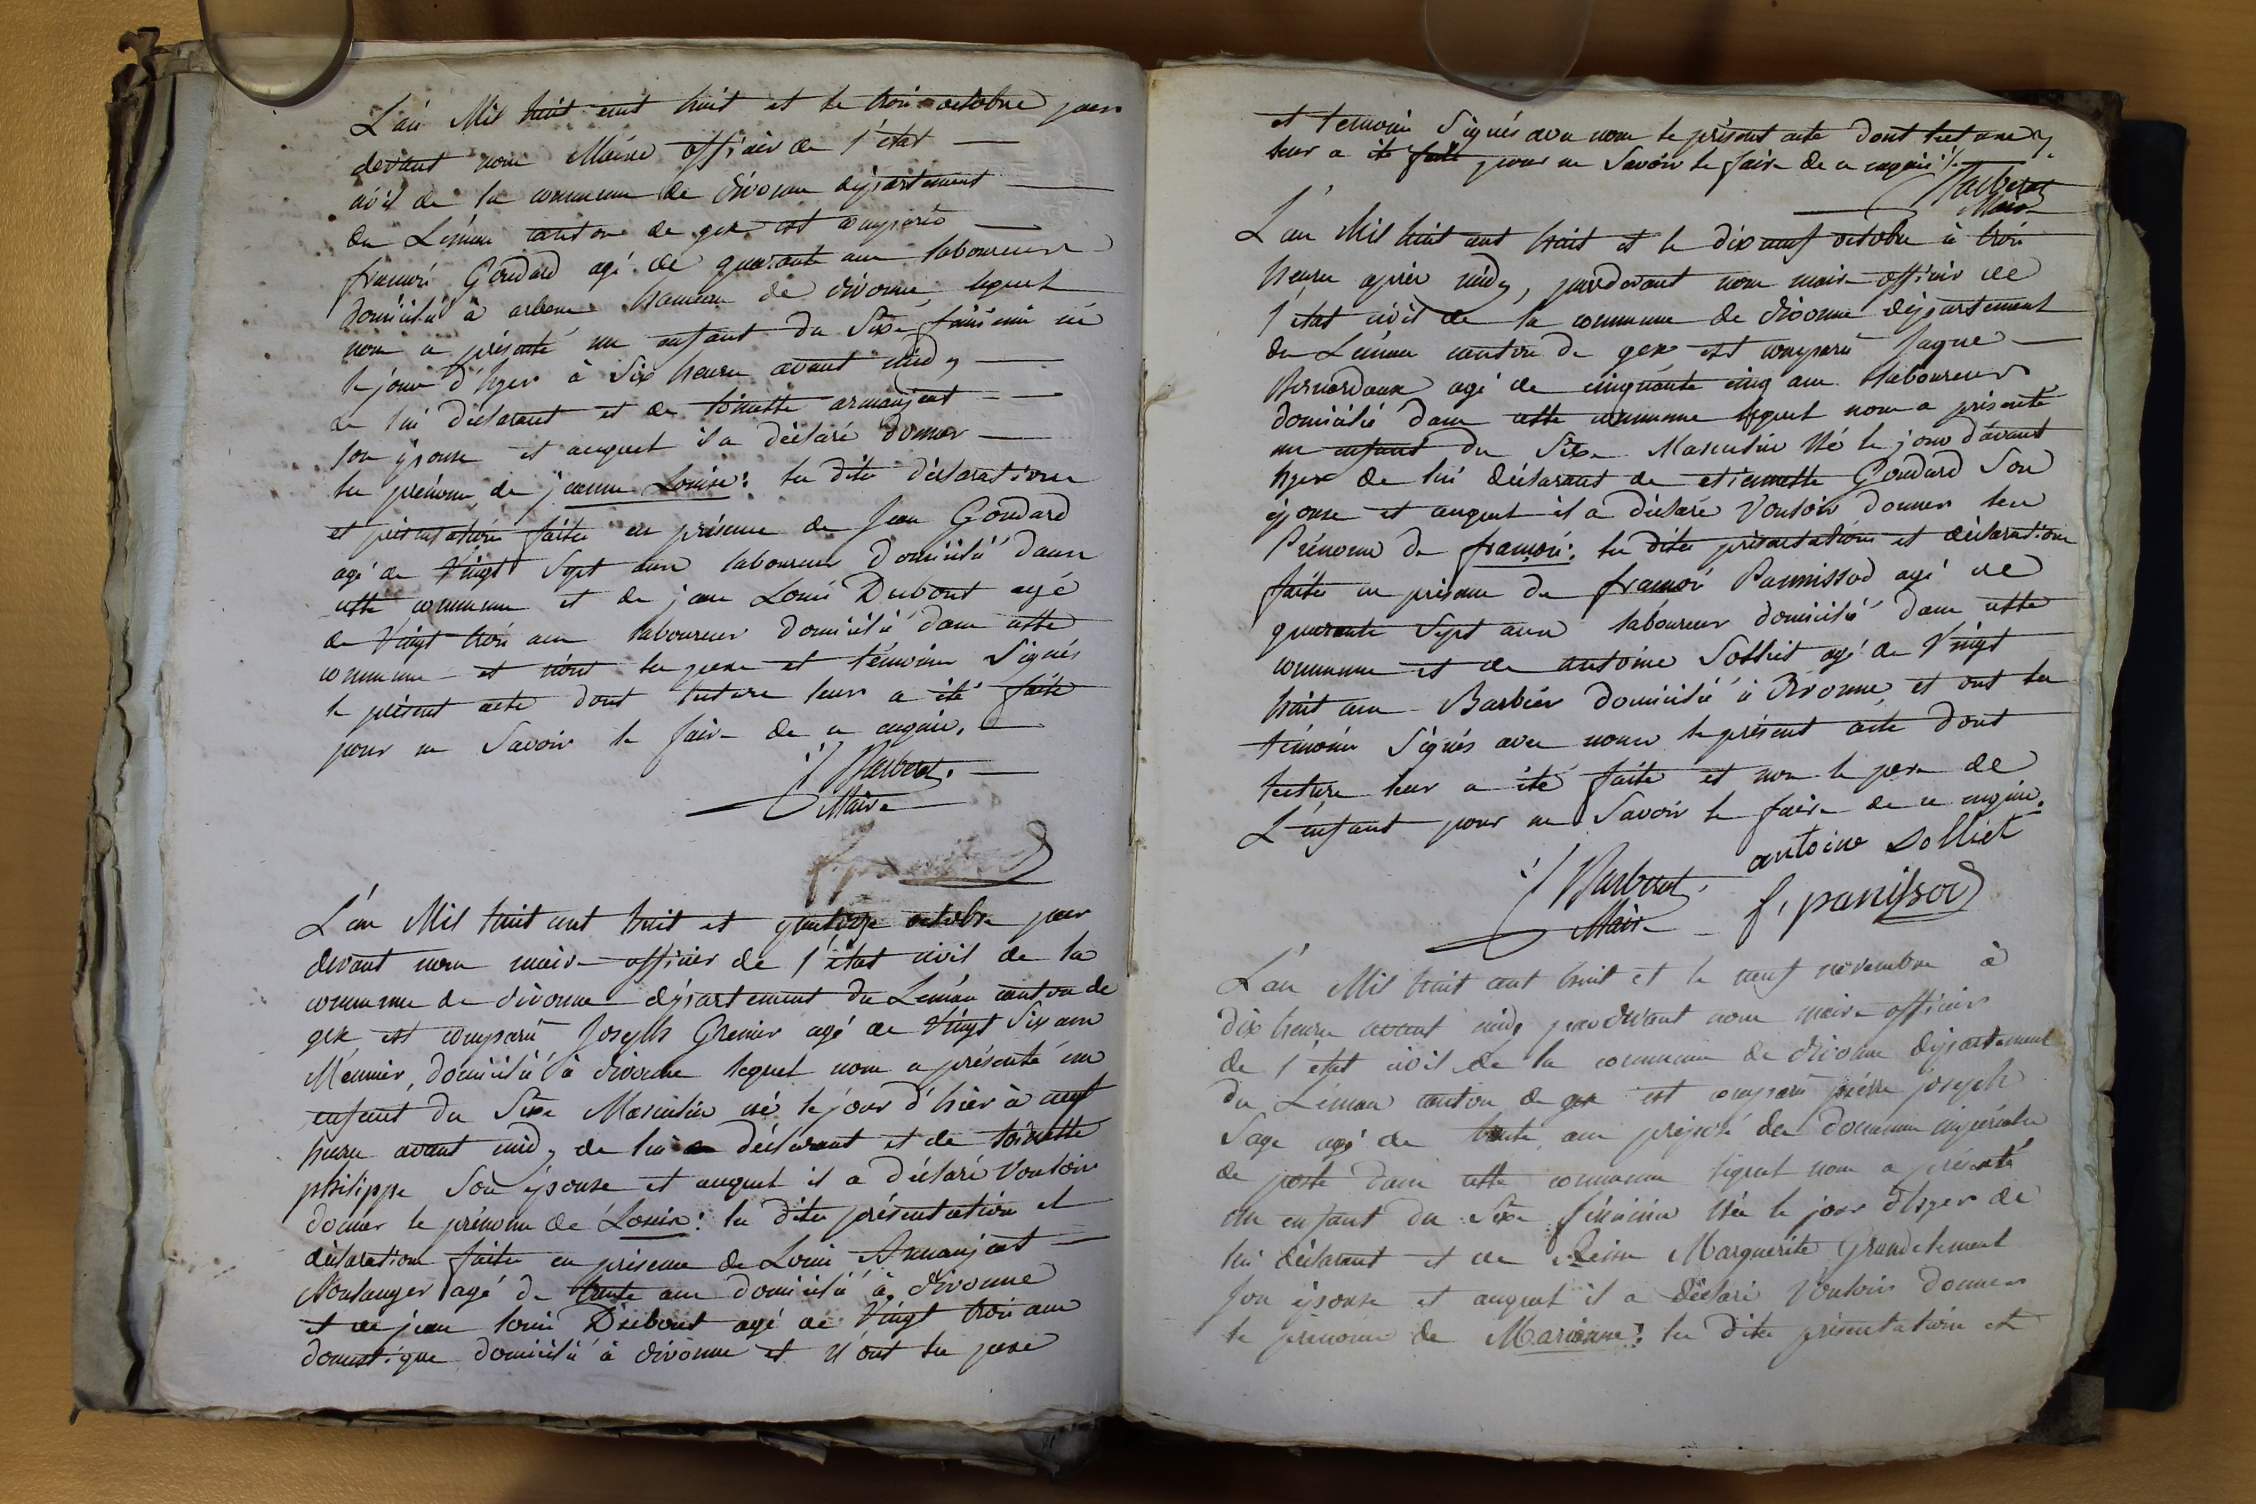 L'an Mil huit cent huit et le trois octobre par
devant nous Maire officier de l'état
civil de la commune de divonne département
du Léman canton de gex est comparu
francois Goudard agé de quarante ans laboureur
domicilié à arbere hameau de divonne, lequel
nous a présenté un enfant du Sexe féminin né
le jour d'hyer à Six heures avant midy
de lui déclarant et de toinette armanjeat
son épouse et auquel il a déclaré donner
les prénoms de jeanne Louise: les dites déclarations
et présentation faites en présence de Jean Goudard
agé de Vingt Sept ans laboureur Domicilié dans
cette commune et de jean Louis Dubout agé
de Vingt trois ans laboureur domicilié dans cette
commune et n'ont les pere et témoins Signés
le présent acte dont lecture leurs a été faite
pour ne Savoir le faire de ce enquis.
J Barberat.
Maire
L'an Mil huit cent huit et quatorze octobre par
devant nous maire officier de l'état civil de la
commune de divonne département du Léman canton de
gex est comparu Joseph Grenier agé de Vingt Six ans
Meunier, domicilié à divonne lequel nous a présenté un
enfant du Sexe Masculin né le jour d'hier à neuf
heures avant midy de lui déclarant et de toinette
philippe Son épouse et auquel il a déclaré Vouloir
donner le prénom de Louis: les dites présentation et
déclaration faites en présence de Louis Armanjeat
Boulanger agé de trente ans domicilié à divonne
et de jean Louis Dubout agé de Vingt trois ans
domestique domicilié à divonne et n'ont les pere
et temoins Signés avec nous le présent acte dont lecture
leur a été faite pour ne Savoir le faire de ce enquis
J Barberat
Maire
L'an Mil huit cent huit et le dix neuf octobre à trois
heures après midy, pardevant nous maire officier de
l'état civil de la commune de divonne département
du Léman canton de gex est comparu Jaque
Bernardaux agé de cinquante cinq ans laboureur
domicilié dans cette commune lequel nous a présenté
un enfant du Sexe Masculin Né le jour d'avant
hyer de lui déclarant de etiennette Goudard Son
épouse et auquel il a déclaré Vouloir donner les
Prénoms de francois: les dites présentations et déclaration
faites en présence de francois Pannissod agé de
quarante Sept ans laboureur domicilié dans cette
commune et de antoine Solliet agé de Vingt
huit ans Barbier domicilié à divonne, et ont les
témoins Signés avec nous le présent acte dont
lecture leur a été faite et non le pere de
L'enfant pour ne Savoir le faire de ce enquis.
antoine Solliet
J Barberat.
Maire
f, panissod
L'an Mil huit cent huit et le neuf novembre à
dix heures avant midy pardevant nous maire officier
de l'état civil de la commune de divonne département
du Léman canton de gex est comparu pierre joseph
Sage agé de trente ans préposé des douanes impériales
de poste dans cette commune lequel nous a présenté
un enfant du Sexe féminin Née le jour d'hyer de
lui déclarant et de Reine Marguerite Grandclement
Son épouse et auquel il a déclaré Vouloir donner
le prenom de Marianne: les dites présentation et